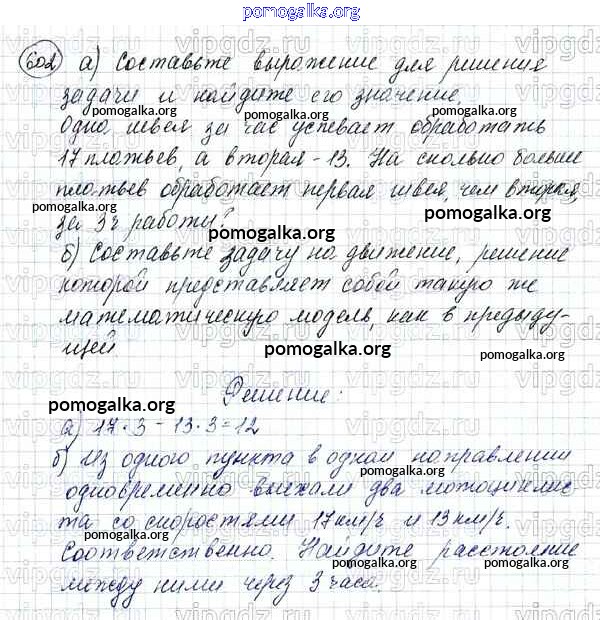 pomogalka.org
602 а) Составьте выражение для решения
задачи и найдите его значение.
pomogalka.org pomogalka.org
Одна швея за час успевает обработать
17 платьев, а вторая - 13. На сколько больше
платьев обработает первая швея, чем вторая,
pomogalka.org pomogalka.org
за 3ч работы?
б) Составьте задачу на движение, решение
которой представляет собой такую же
математическую модель, как в предыду-
щей
pomogalka.org pomogalka.org
Решение:
pomogalka.org
а) 17·3 - 13·3=12
б) Из одного пункта в одном направлении
одновременно выехали два мотоциклис-
та со скоростями 17км/ч и 13км/ч.
pomogalka.org
Соответственно. Найдите расстояние
между ними через 3 часа.
pomogalka.org